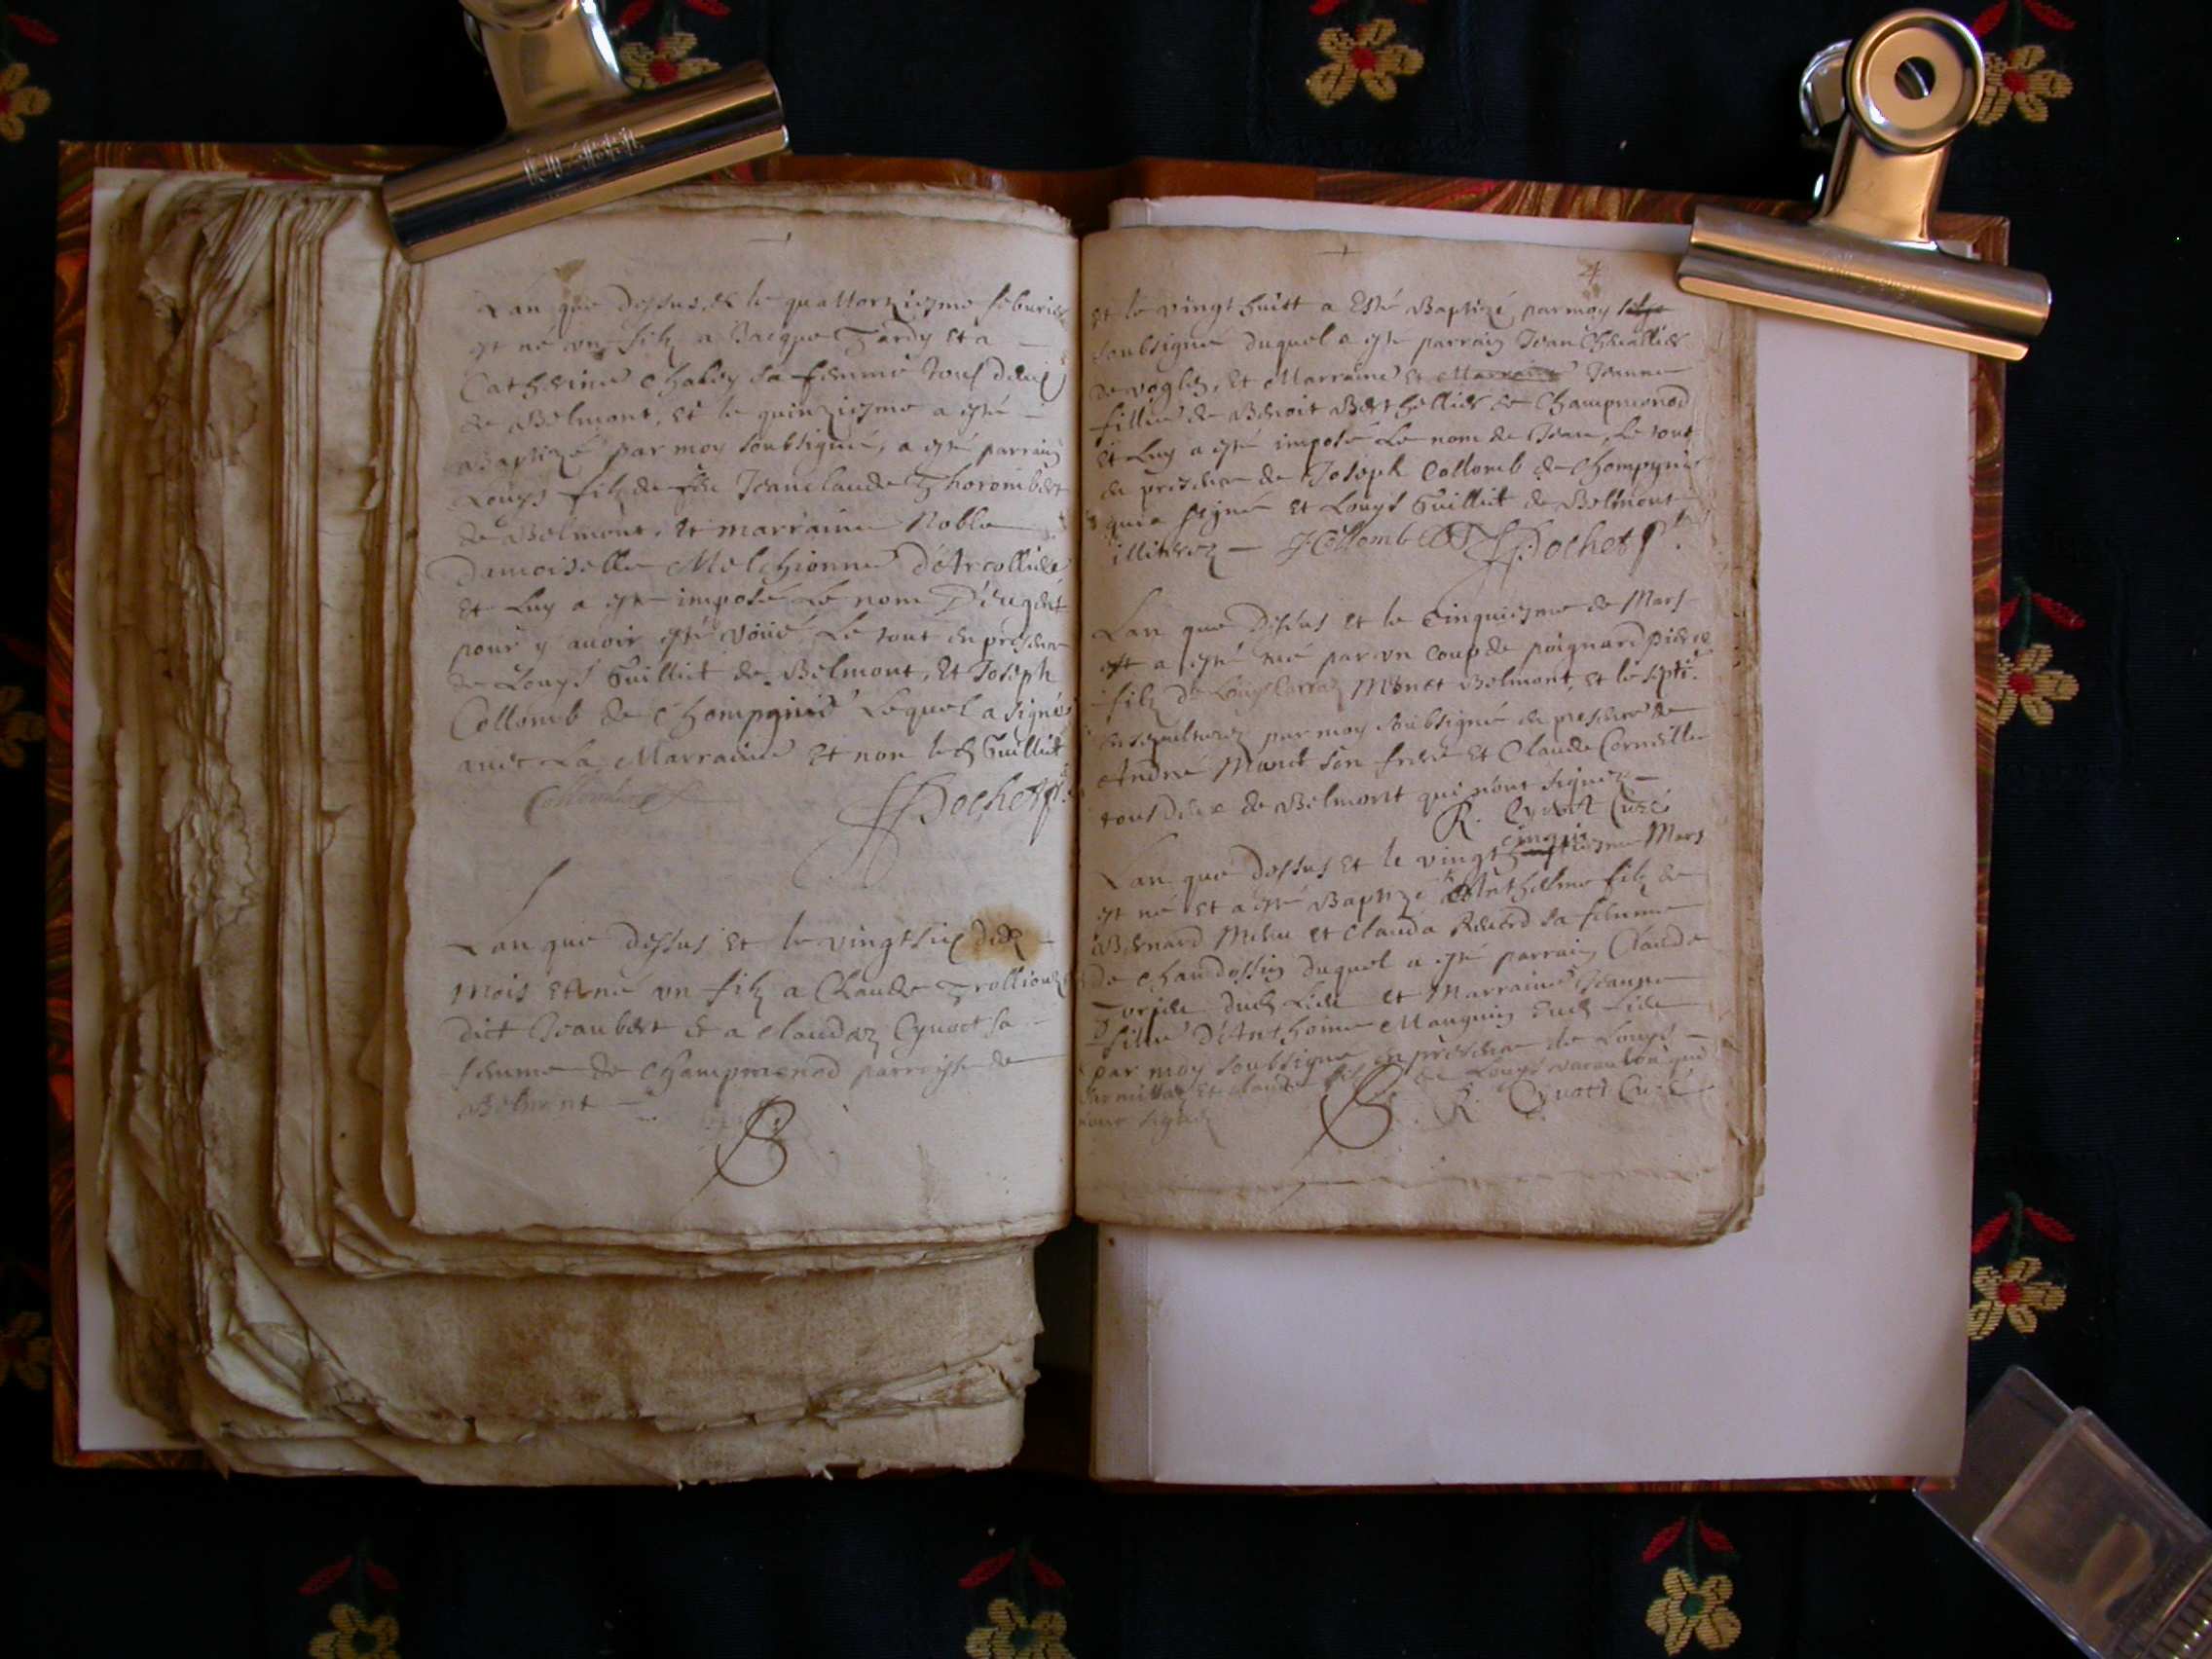 Lan que dessus, et le quattorziesme feburier
est né un filz a Jacque Tardy et a
Catherine Chaley sa femme tous deux
de Belmont, et le quinziesme a esté
Baptizé par moy soubsigné, a esté parrain
Louys filz de feu Jean claude Thorombert
de Belmont, et marraine Noble
Damoiselle Melchionne d'Arcollieres
et Luy a esté imposé Le nom
pour y avoir esté voüé Le tout en presence
de Louys Guilliet de Belmont, Et Joseph
Collomb de Chompgnier Lequel a signé
avec La Marraine Et non led Guilliet
Collomb
Pochet
Lan que dessus Et le vingtsix dud
Mois est né un filz a Claude Trolliouz
dict Jaubert et a Claudaz Cynoct sa
femme de Champmenod parroisse de
Belmont
24
et le vingt huict a Esté Baptizé par moy
soubsigné duquel a esté parrain Jean Chevallier
de Vogles, Et Marraine et Marraine Jeanne
fillie de Benoit Berthellier de Champmenod
Et Luy a esté imposé Le nom de Jean, Le tout
en presence de Joseph Collomb de Chompgnier
qui a signé Et Louys Guilliet de Belmont
illiterez JCollomb Pochet
Lan que dessus et le cinquiesme de Mars
est a esté tué par un coup de poignard Pierre
filz de Louys Monet Belmont, et le septi.
Ensepulturez par moy soubsigné en presence de
André Monet son frere et Claude Corneillie
tous deux de Belmont qui n'ont signez
R. Cynoct Curé
Lan que dessus et le vingt cinquiesme Mars
est né et a esté Baptizé Anthelme filz de
Bernard et Clauda Reverd sa femme
de Chandossin duquel a esté parrain Claude
dud Lieu et Marraine Jeanne
fillie d'Anthoine Mauguin dud Lieu
par moy soubsigné En presence de Louys
et Claude filz de Louys qui
n'ont signez R. Cynoct Curé